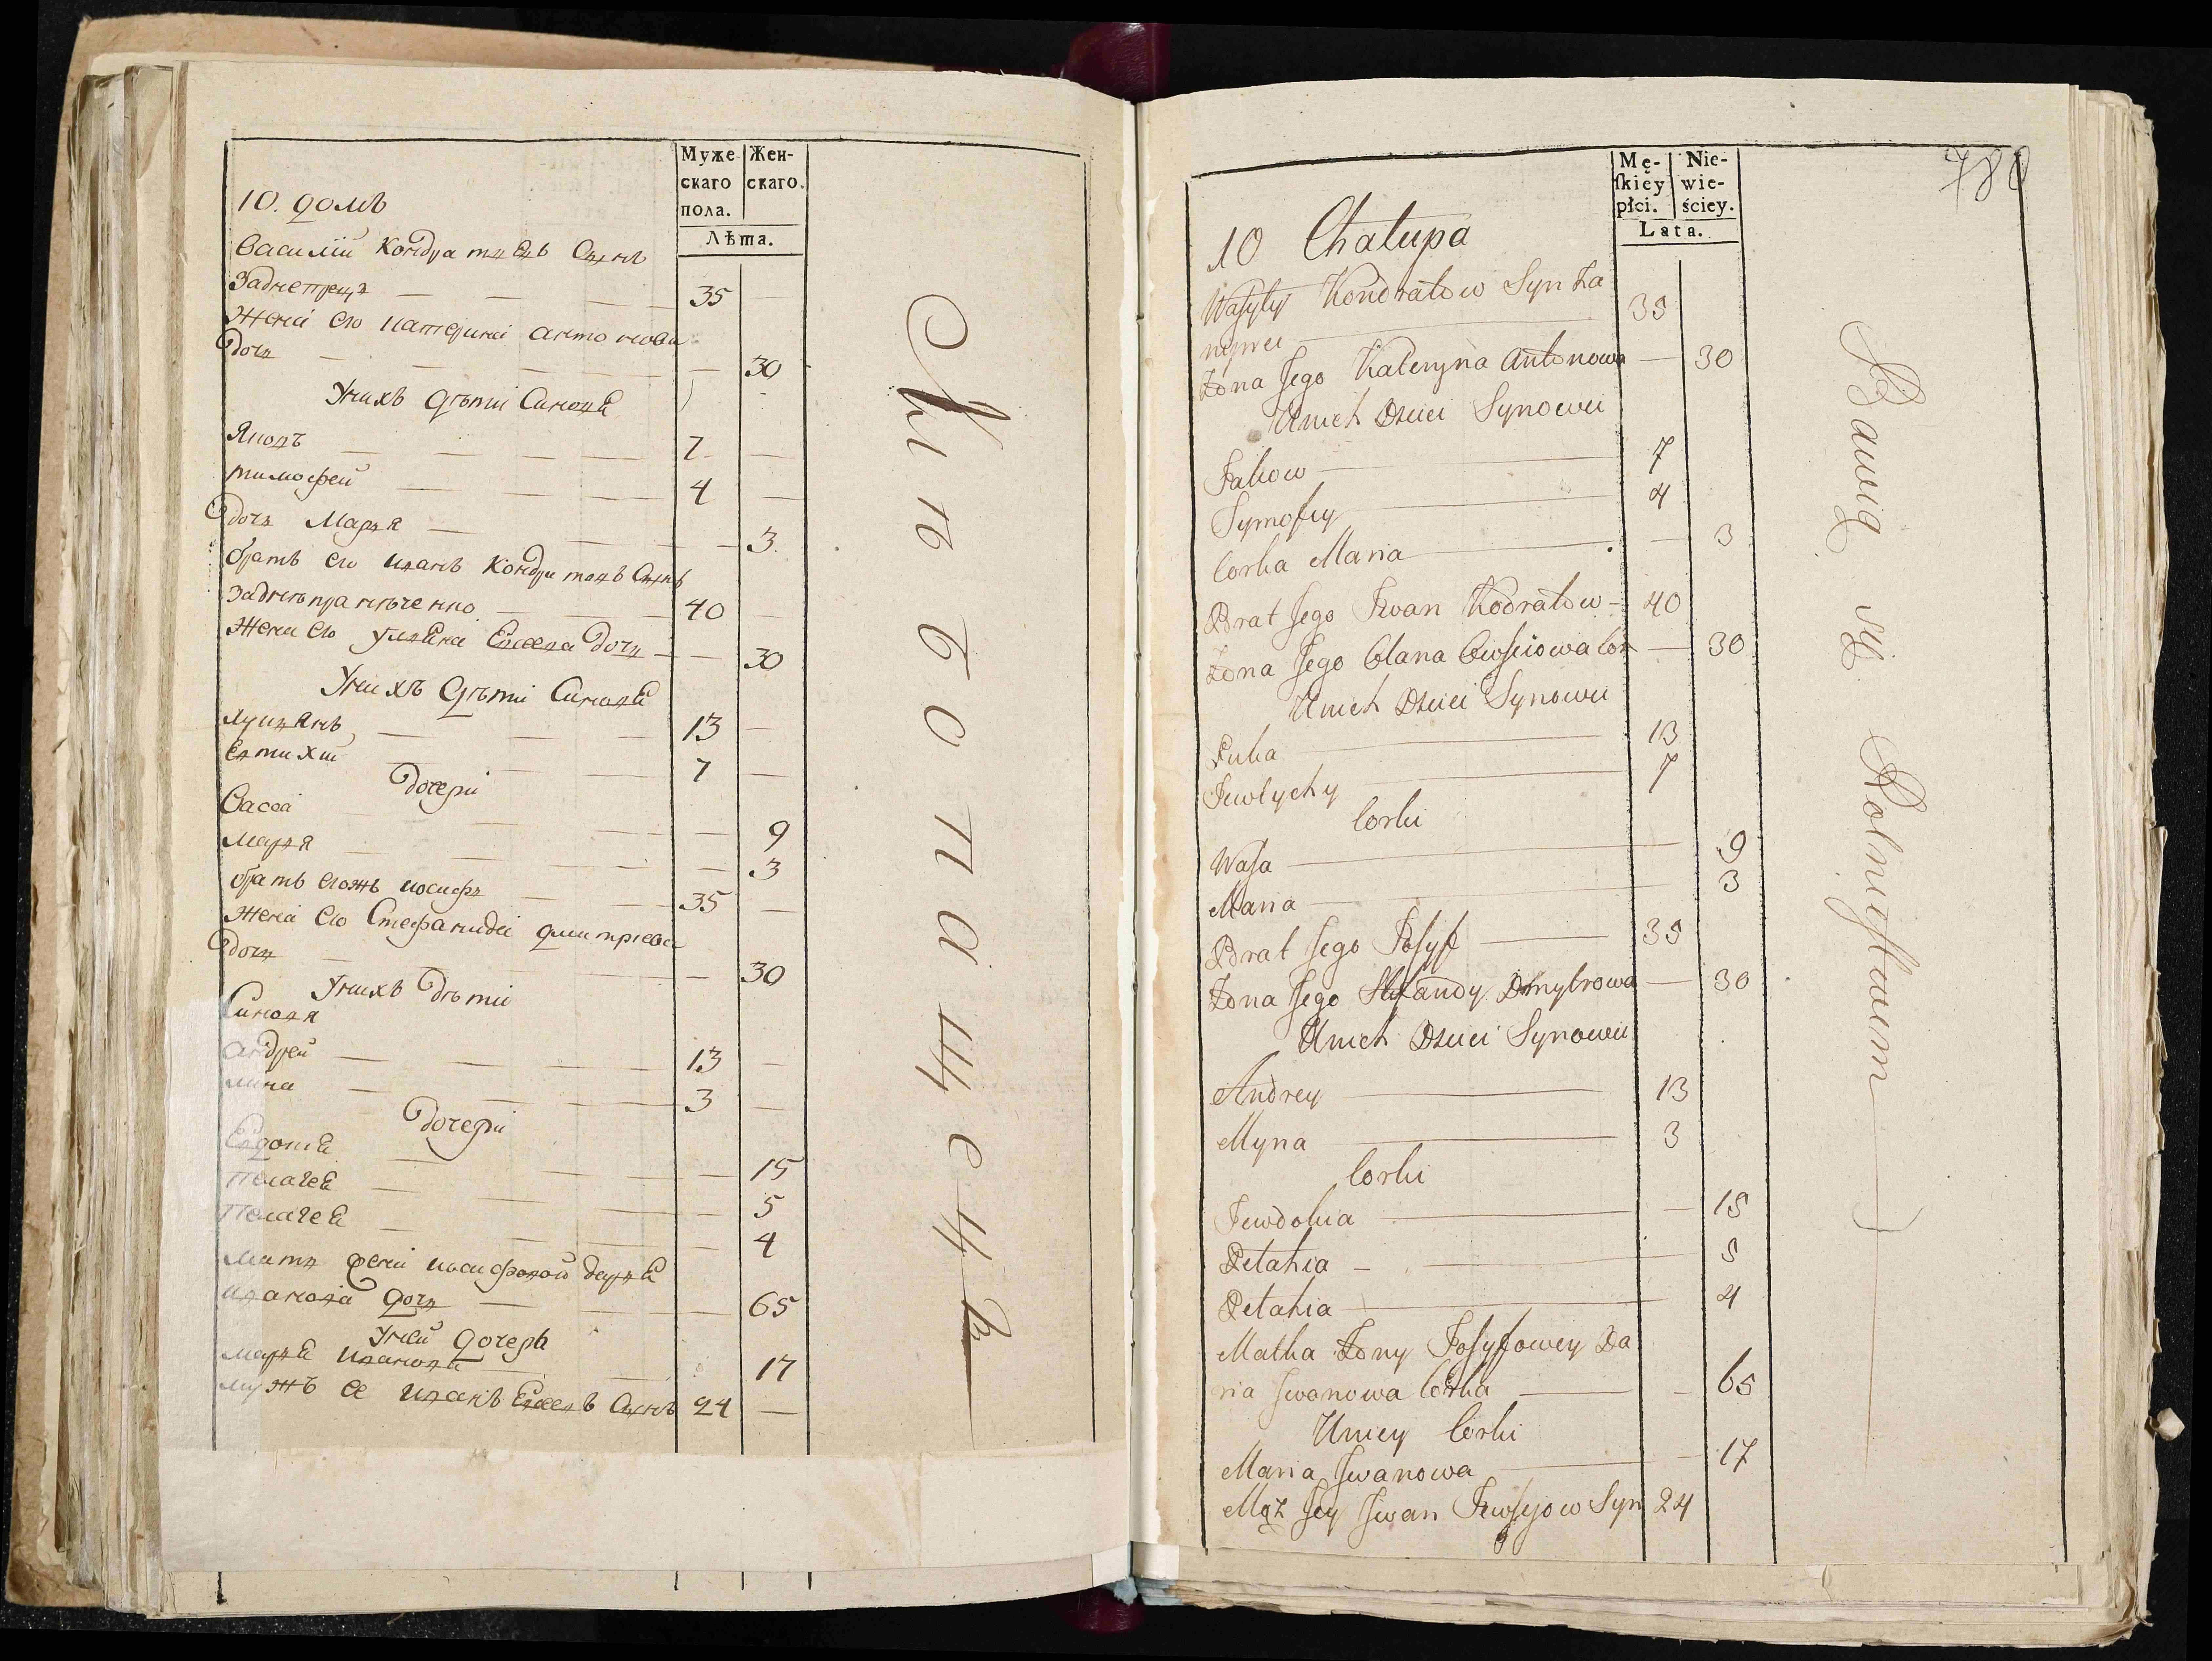 Муже-
скаго
пола.
Жен-
скаго.
Лѣта.
10. домъ
Василий Кондратиевъ Сынъ
Заднепрец — 35
Жена его катерина антонова
дочь — 30
У них дѣти Синовя
Яков — 7
тимофей — 4
дочь Маря — 3
братъ его иванъ Кондратовъ Сынъ
Заднѣпраниченко — 40
Жена его уляна Евсева дочь — 30
У нихъ дѣти Синовя
лукянъ — 13
Евтихий — 7
дочери
Васса — 9
Маря — 3
братъ егожъ иосифъ — 35
Жена его Стефанида дмитриева
дочь — 30
У нихъ дѣти
Синовя
андрей — 13
мина — 3
дочери
Евдокия — 15
Пелагея — 5
Пелагея — 4
мать жени иосифовой даря
иванова дочь — 65
У ней дочерь
маря иванова — 17
мужъ ее иванъ Евсевъ Сынъ 24
780
Mę-
skiéy
płci.
Nie-
wie-
ściey.
Lata.
10 Chałupa
Wasyly Kondratow Syn Za
nyprec — 35
Żona Jego Kateryna Antonowa — 30
U nich Dzieci Synowie
Jakow — 7
Tymofey — 4
Corka Maria — 3
Brat Jego Iwan Kodratow — 40
Żona Jego Olana Owsiowa Cor — 30
U nich Dzieci Synowie
Łuka — 13
Jewtychy — 7
Corki
Wasa — 9
Maria — 3
Brat Jego Josyf — 35
Żona Jego Stefandy Dmytrowa — 30
U nich Dzieci Synowie
Andrey — 13
Myna — 3
Corki
Jewdokia — 15
Pelahia — 5
Pelahia — 4
Matka Żony Josyfowey Da
ria Iwanowa Corka — 65
U niey Corki
Maria Iwanowa — 17
Mąż Jey Iwan Jewsejow Syn 24
Bawią się Rolnictwem